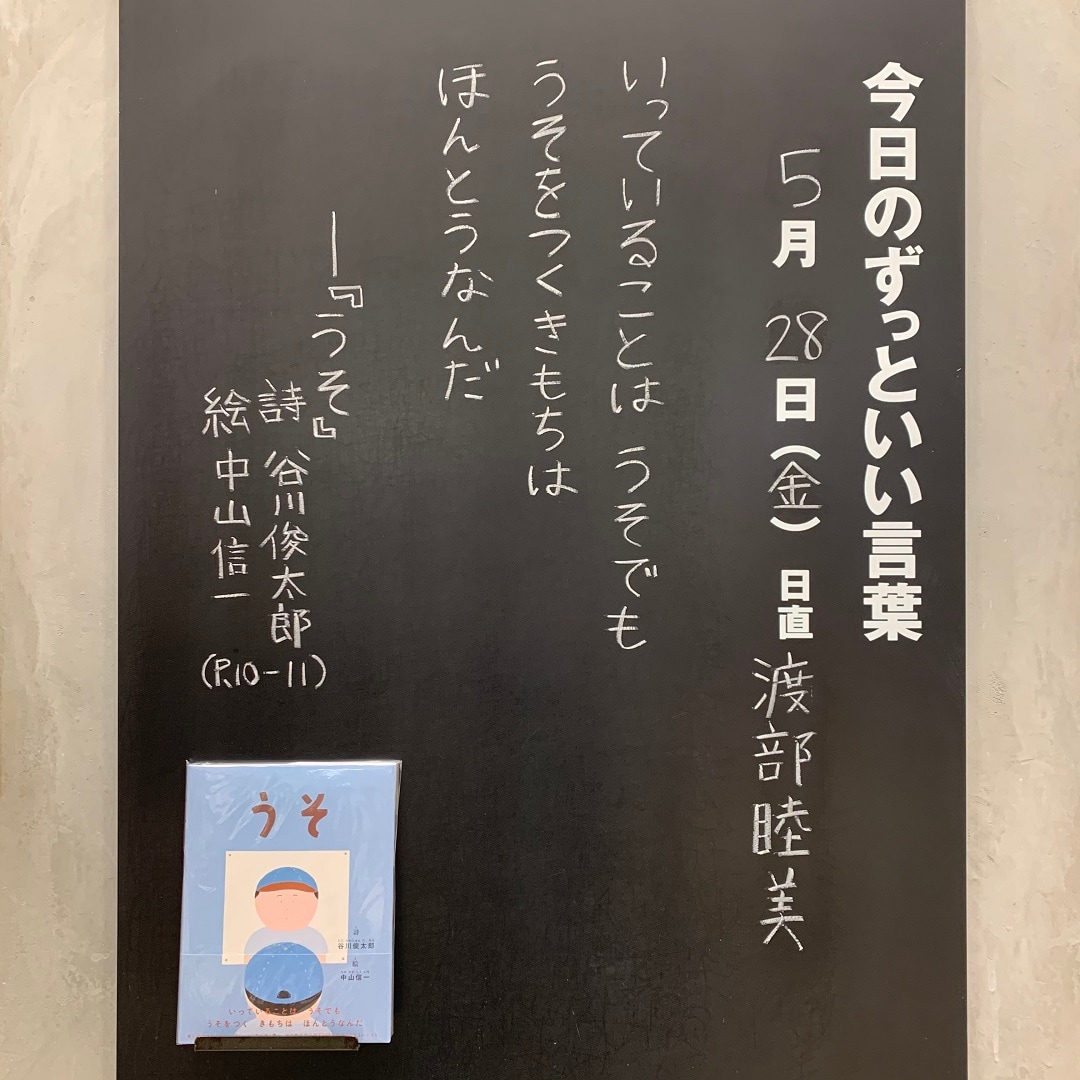 今日のずっといい言葉
5月28日(金) 日直 渡部睦美
いっていることは うそでも
うそをつくきもちは
ほんとうなんだ
―『うそ』
詩 谷川俊太郎
絵 中山信一
(P.10-11)
うそ
詩
谷川俊太郎
絵
中山信一
いっていることは うそでも
うそをつく きもちは ほんとうなんだ